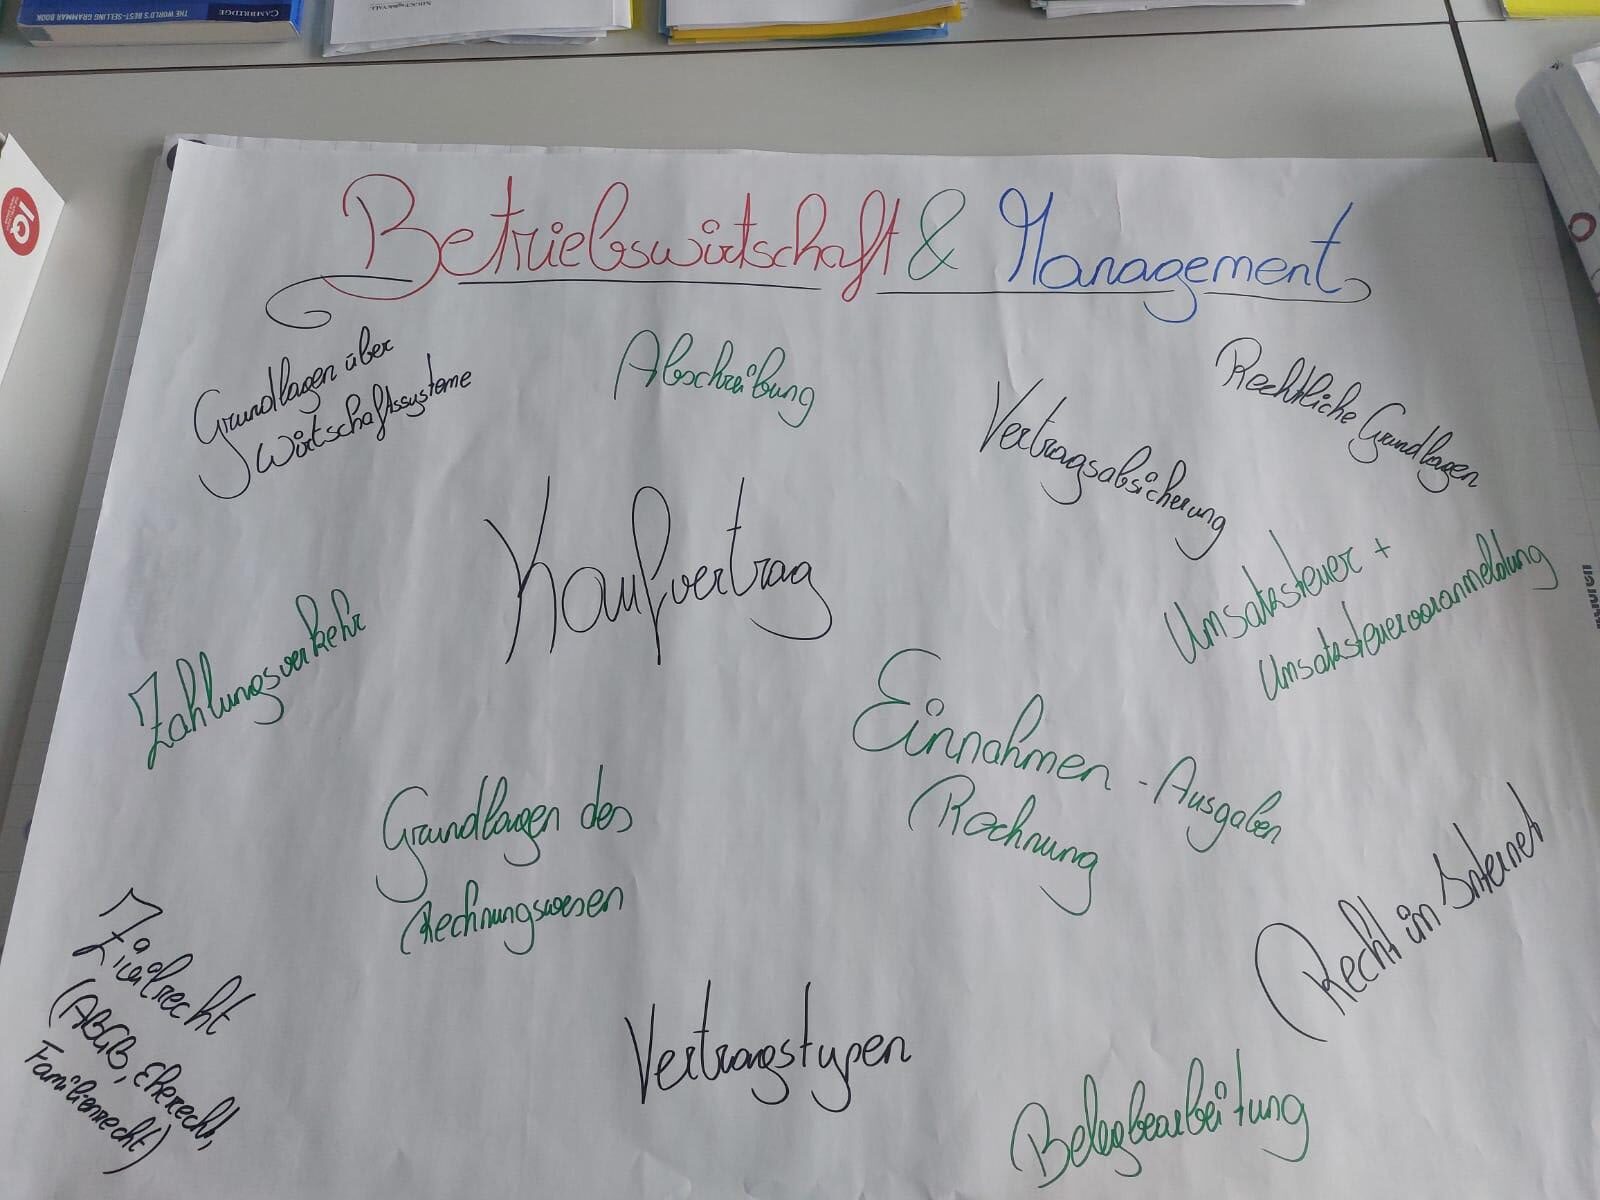 CAMBRIDGE
THE WORLD'S BEST-SELLING GRAMMAR BOOK
IQ
Betriebswirtschaft & Management
Grundlagen über
Wirtschaftssysteme
Abschreibung
Rechtliche Grundlagen
Vertragsabsicherung
Kaufvertrag
Umsatzsteuer +
Umsatzsteuervoranmeldung
Zahlungsverkehr
Einnahmen - Ausgaben
Rechnung
Grundlagen des
Rechnungswesen
Recht im Internet
Zivilrecht
(ABGB, Eherecht,
Familienrecht)
Vertragstypen
Belegbearbeitung